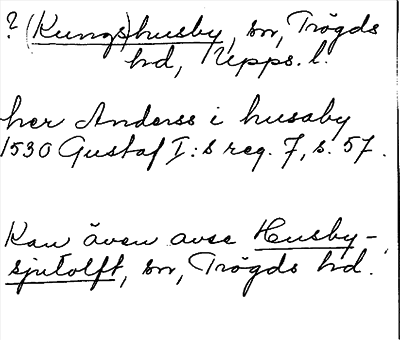 ? (Kungs)husby, sn, Trögds
hd, Upps. l.
her Anderss i husaby
1530 Gustaf I:s reg. 7, s. 57.
Kan även avse Husby-
sjutolft, sn, Trögds hd.